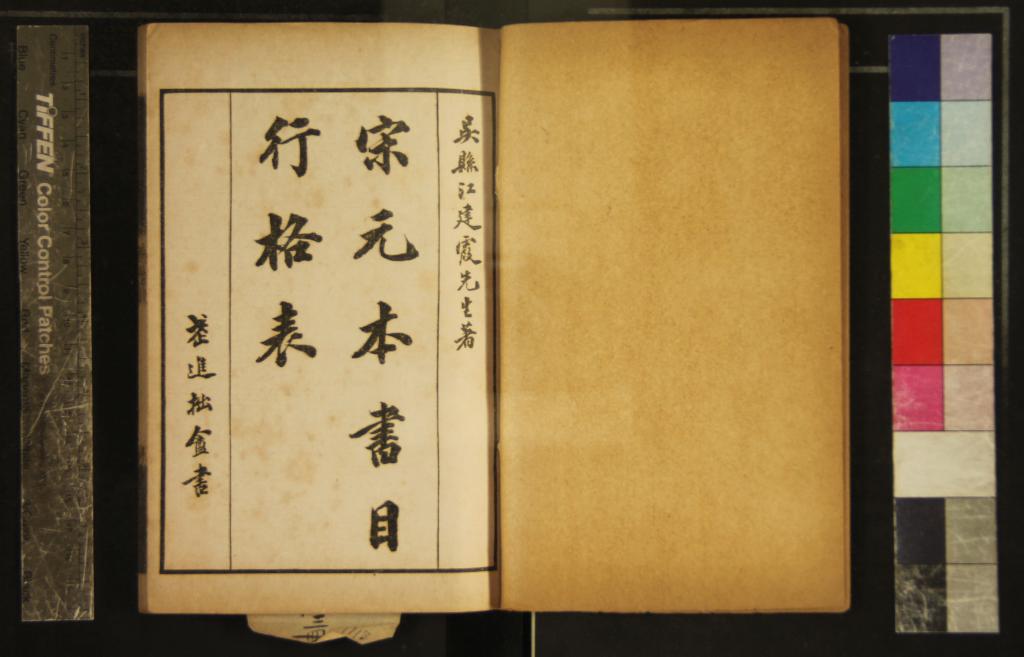 吳縣江建霞先生著
宋元本書目
行格表
進拙盦書
TIFFEN Color Control Patches
Blue
Cyan
Green
Yellow